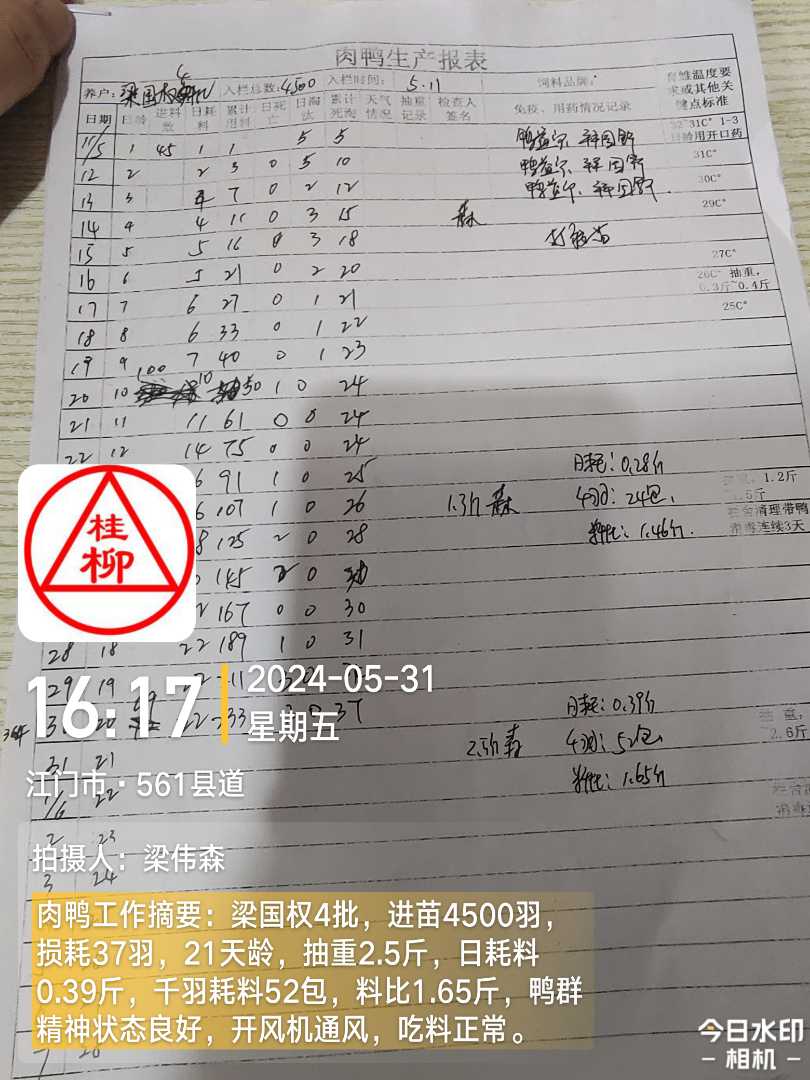 肉鸭生产报表
养户: 梁国权 4 入栏总数: 4500 入栏时间: 5.11 饲料品牌: 育雏温度要求或其他关键点标准
日期 日龄 进料数 日耗料 累计用料 日死亡 日淘汰 累计死淘 天气情况 抽重记录 检查人签名 免疫、用药情况记录
11/5 1 45 1 1 5 5 鸭益尔、 31C° 1-3日龄用开口药
12 2 2 3 0 5 10 鸭益尔、 31C°
13 3 4 7 0 2 12 鸭益尔、 30C°
14 4 4 11 0 3 15 森 29C°
15 5 5 16 0 3 18
16 6 5 21 0 2 20 27C°
17 7 6 27 0 1 21 26C° 抽重, 0.3斤~0.4斤
18 8 6 33 0 1 22 25C°
19 9 7 40 0 1 23
20 10 100 10 50 1 0 24
21 11 11 61 0 0 24
22 12 14 75 0 0 24
6 91 1 0 25 日耗: 0.28斤 1.2斤
6 107 1 0 26 1.3斤 森 千羽: 24包. 栏舍清理带鸭消毒连续3天
8 125 2 0 28 料比: 1.46斤.
145 2 0
2 167 0 0 30
28 18 22 189 1 0 31
29 19 22
20 59 22 33 0 37 日耗: 0.39斤
31 21 2.5斤 森 千羽: 52包 2.6斤
1/6 22 料比: 1.65斤
2 23
3 24
桂柳
16:17
2024-05-31
星期五
江门市·561县道
拍摄人：梁伟森
肉鸭工作摘要：梁国权4批，进苗4500羽，
损耗37羽，21天龄，抽重2.5斤，日耗料
0.39斤，千羽耗料52包，料比1.65斤，鸭群
精神状态良好，开风机通风，吃料正常。
今日水印
-相机-